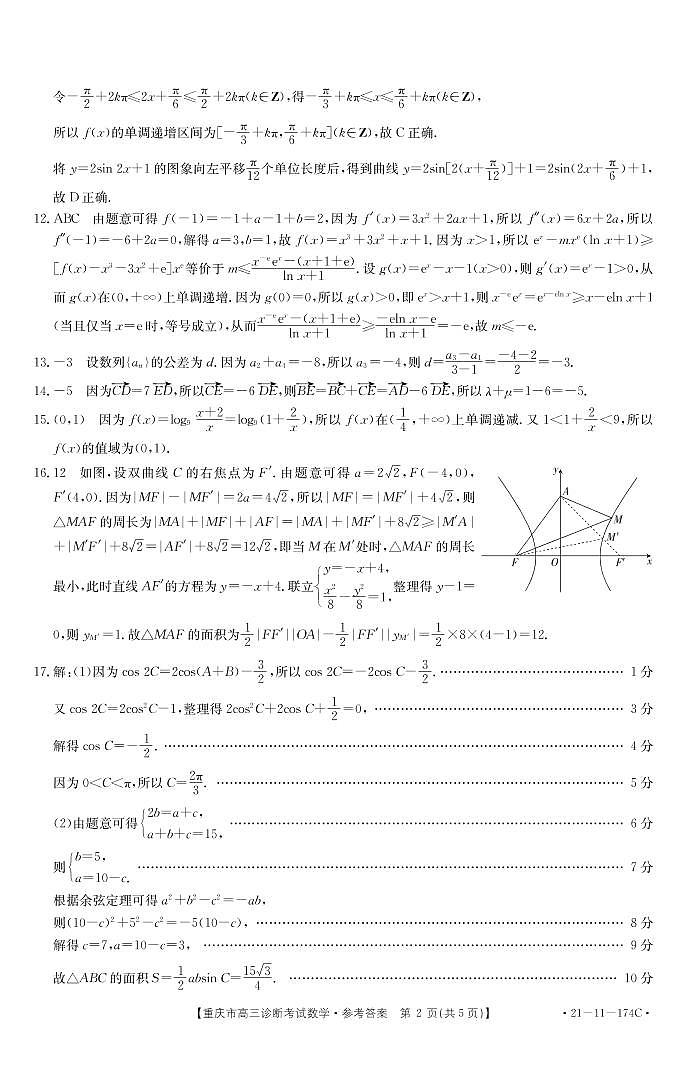 令−π/2+2kπ⩽2x+π/6⩽π/2+2kπ(k∈Z),得−π/3+kπ⩽x⩽π/6+kπ(k∈Z),
所以 f(x)的单调递增区间为[−π/3+kπ,π/6+kπ](k∈Z),故 C 正确.
将 y=2sin 2x+1 的图象向左平移π/12个单位长度后,得到曲线 y=2sin[2(x+π/12)]+1=2sin(2x+π/6)+1,
故 D 正确.
12. ABC 由题意可得 f(−1)=−1+a−1+b=2,因为 f′(x)=3x²+2ax+1,所以 f″(x)=6x+2a,所以
f″(−1)=−6+2a=0,解得 a=3,b=1,故 f(x)=x³+3x²+x+1. 因为 x>1,所以 eˣ−mxᵉ(ln x+1)⩾
[f(x)−x³−3x²+e]xᵉ等价于 m⩽(x⁻ᵉeˣ−(x+1+e))/(ln x+1). 设 g(x)=eˣ−x−1(x>0),则 g′(x)=eˣ−1>0,从
而 g(x)在(0,+∞)上单调递增. 因为 g(0)=0,所以 g(x)>0,即 eˣ>x+1,则 x⁻ᵉeˣ=e^(x−eln x)⩾x−eln x+1
(当且仅当 x=e 时,等号成立),从而(x⁻ᵉeˣ−(x+1+e))/(ln x+1)⩾(−eln x−e)/(ln x+1)=−e,故 m⩽−e.
13. −3 设数列{aₙ}的公差为 d. 因为 a₂+a₄=−8,所以 a₃=−4,则 d=(a₃−a₁)/(3−1)=(−4−2)/2=−3.
14. −5 因为CD→=7 ED→,所以CE→=−6 DE→,则BE→=BC→+CE→=AD→−6 DE→,所以 λ+μ=1−6=−5.
15. (0,1) 因为 f(x)=log₉ (x+2)/x=log₉(1+2/x),所以 f(x)在(1/4,+∞)上单调递减. 又 1<1+2/x<9,所以
f(x)的值域为(0,1).
16. 12 如图,设双曲线 C 的右焦点为 F′. 由题意可得 a=2√2,F(−4,0),
F′(4,0). 因为|MF|−|MF′|=2a=4√2,所以|MF|=|MF′|+4√2,则
△MAF 的周长为|MA|+|MF|+|AF|=|MA|+|MF′|+8√2⩾|M′A|
+|M′F′|+8√2=|AF′|+8√2=12√2,即当 M 在 M′处时,△MAF 的周长
最小,此时直线 AF′的方程为 y=−x+4. 联立{y=−x+4, x²/8−y²/8=1, 整理得 y−1=
0,则 y_M′=1. 故△MAF 的面积为1/2|FF′||OA|−1/2|FF′||y_M′|=1/2×8×(4−1)=12.
y
A
M
M′
F
O
F′
x
17. 解:(1)因为 cos 2C=2cos(A+B)−3/2,所以 cos 2C=−2cos C−3/2. …… 1 分
又 cos 2C=2cos²C−1,整理得 2cos²C+2cos C+1/2=0, …… 3 分
解得 cos C=−1/2. …… 4 分
因为 0<C<π,所以 C=2π/3. …… 5 分
(2)由题意可得{2b=a+c, a+b+c=15, …… 6 分
则{b=5, a=10−c. …… 7 分
根据余弦定理可得 a²+b²−c²=−ab,
则(10−c)²+5²−c²=−5(10−c), …… 8 分
解得 c=7,a=10−c=3, …… 9 分
故△ABC 的面积 S=1/2absin C=15√3/4. …… 10 分
【重庆市高三诊断考试数学·参考答案 第 2 页(共 5 页)】 ·21−11−174C·